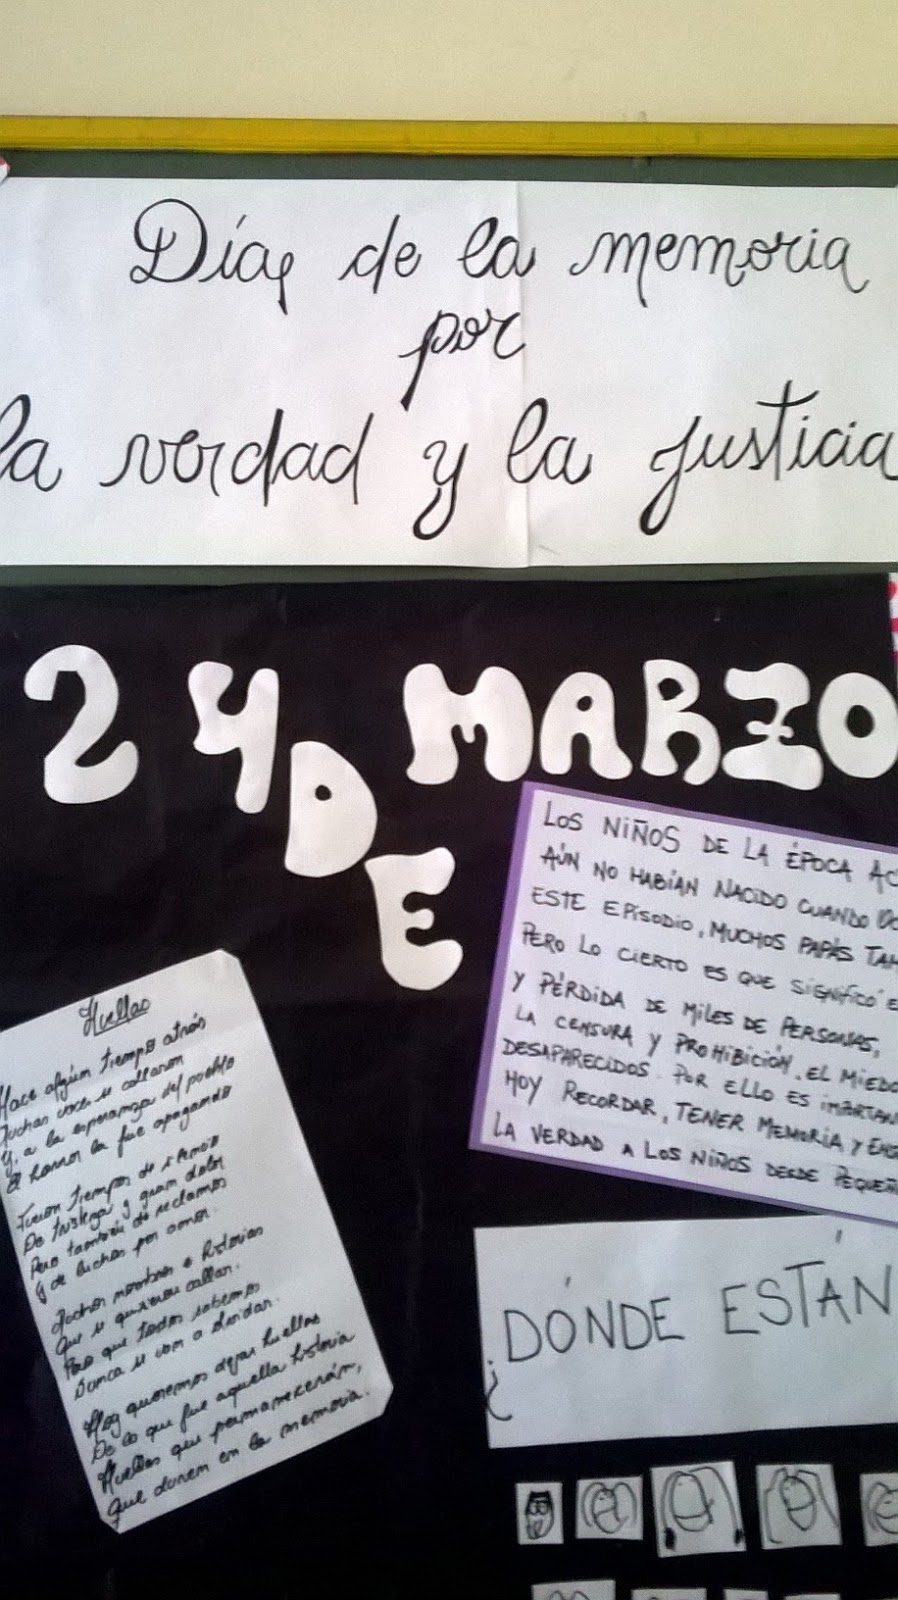 Día de la memoria
por
la verdad y la justicia
24 DE MARZO
LOS NIÑOS DE LA ÉPOCA AC
AÚN NO HABÍAN NACIDO CUANDO
ESTE EPISODIO, MUCHOS PAPÁS TAM
PERO LO CIERTO ES QUE SIGNIFICÓ E
Y PÉRDIDA DE MILES DE PERSONAS,
LA CENSURA Y PROHIBICIÓN. EL MIEDO
DESAPARECIDOS. POR ELLO ES IMPORTAN
HOY RECORDAR, TENER MEMORIA Y ENS
LA VERDAD A LOS NIÑOS DESDE PEQUEÑ
Huellas
Hace algún tiempo atrás
Muchas voces se callaron
Y, a la esperanza del pueblo
El horror la fue apagando
Fueron tiempos de silencio
De tristeza y gran dolor
Pero también de reclamos
Y de luchas por amor.
Muchos nombres e historias
Que se quisieron callar.
Pero que todos sabemos
Nunca se van a olvidar.
Hoy queremos dejar huellas
De lo que fue aquella historia
Huellas que permanecerán,
Que duren en la memoria.
¿DÓNDE ESTÁN